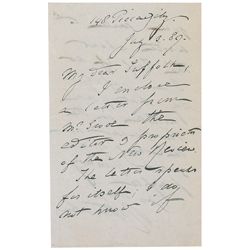 148 Piccadilly.
Jany 3. 89.
My dear Suffolk,
I enclose
a letter from
Mr. Grove the
editor & proprietor
of the New Review
The letter speaks
for itself; I do
not know if